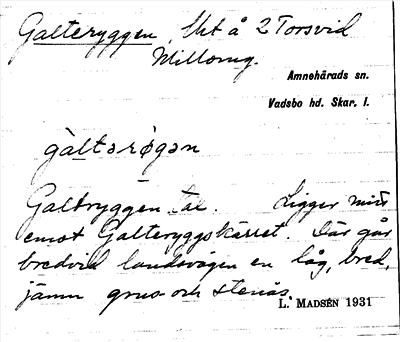 Galteryggen, Skt å 2 Torsvid
Mellomg.
Amnehärads sn.
Vadsbo hd. Skar. l.
gàltərøgən
Galtryggen tal. Ligger mitt
emot Galteryggskärret. Där går
bredvid landsvägen en låg, bred,
jämn grus- och stenås.
L. MADSÉN 1931